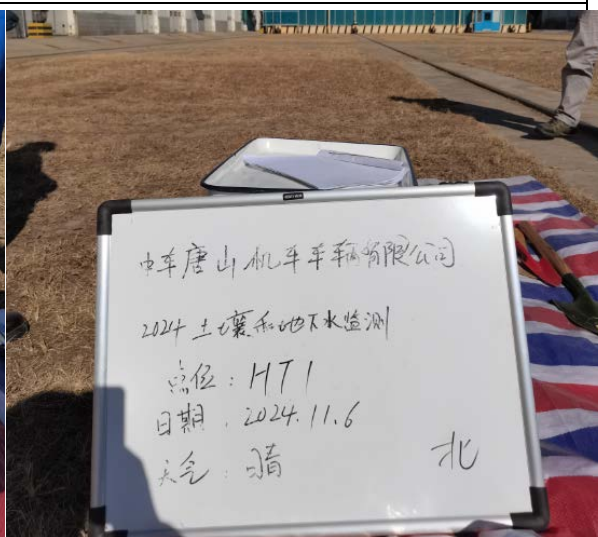 中车唐山机车车辆有限公司
2024 土壤和地下水监测
点位：HT1
日期：2024.11.6
天气：晴
北